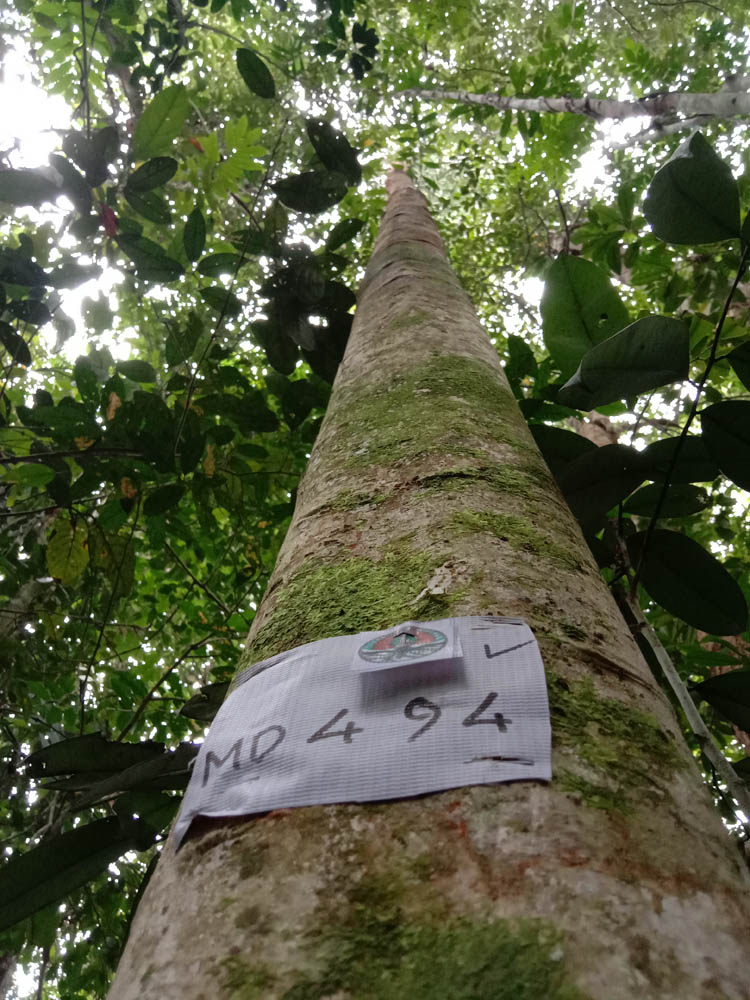 MD 494